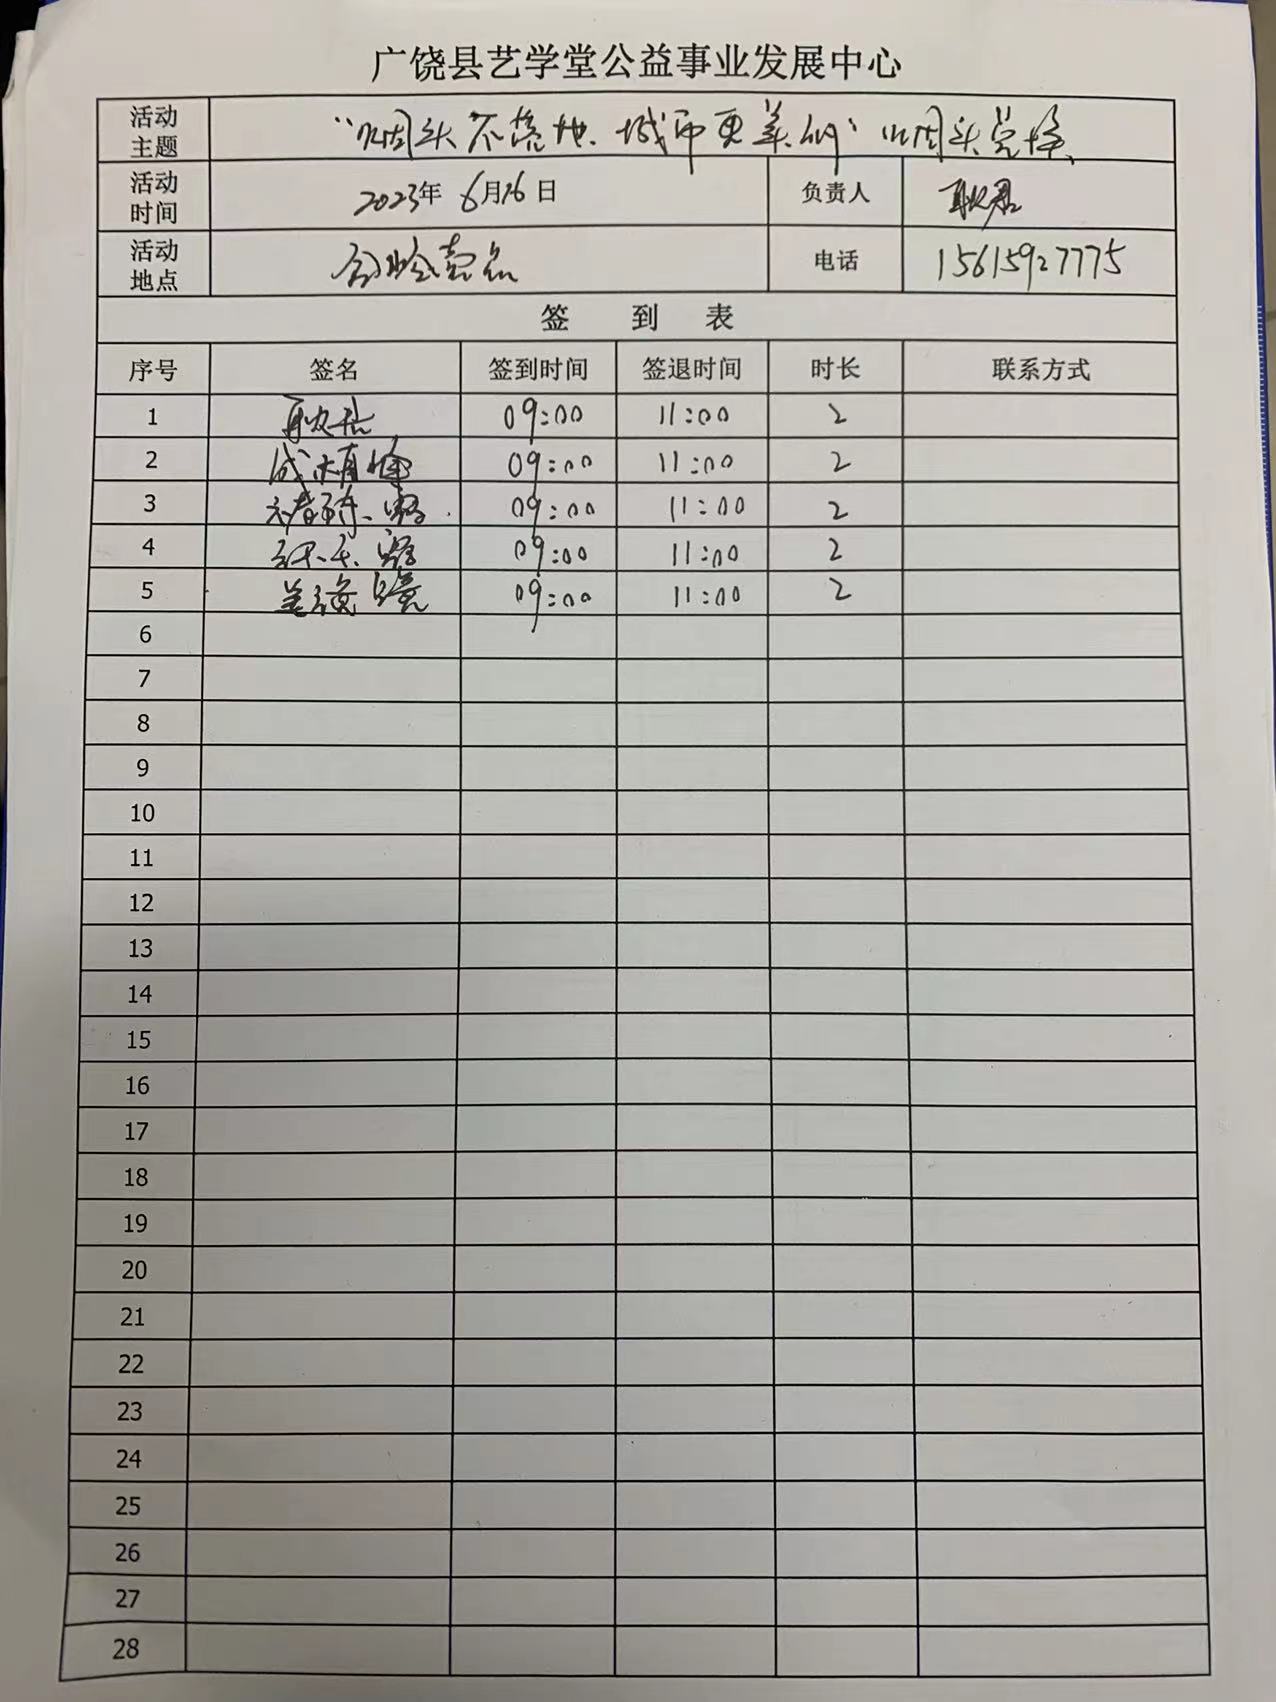 广饶县艺学堂公益事业发展中心
活动主题 "烟头不落地.城市更美丽" 烟头兑换
活动时间 2023年6月16日 负责人 耿君
活动地点 电话 15615927775
签 到 表
序号 签名 签到时间 签退时间 时长 联系方式
1 耿君 09:00 11:00 2
2 09:00 11:00 2
3 09:00 11:00 2
4 09:00 11:00 2
5 09:00 11:00 2
6
7
8
9
10
11
12
13
14
15
16
17
18
19
20
21
22
23
24
25
26
27
28